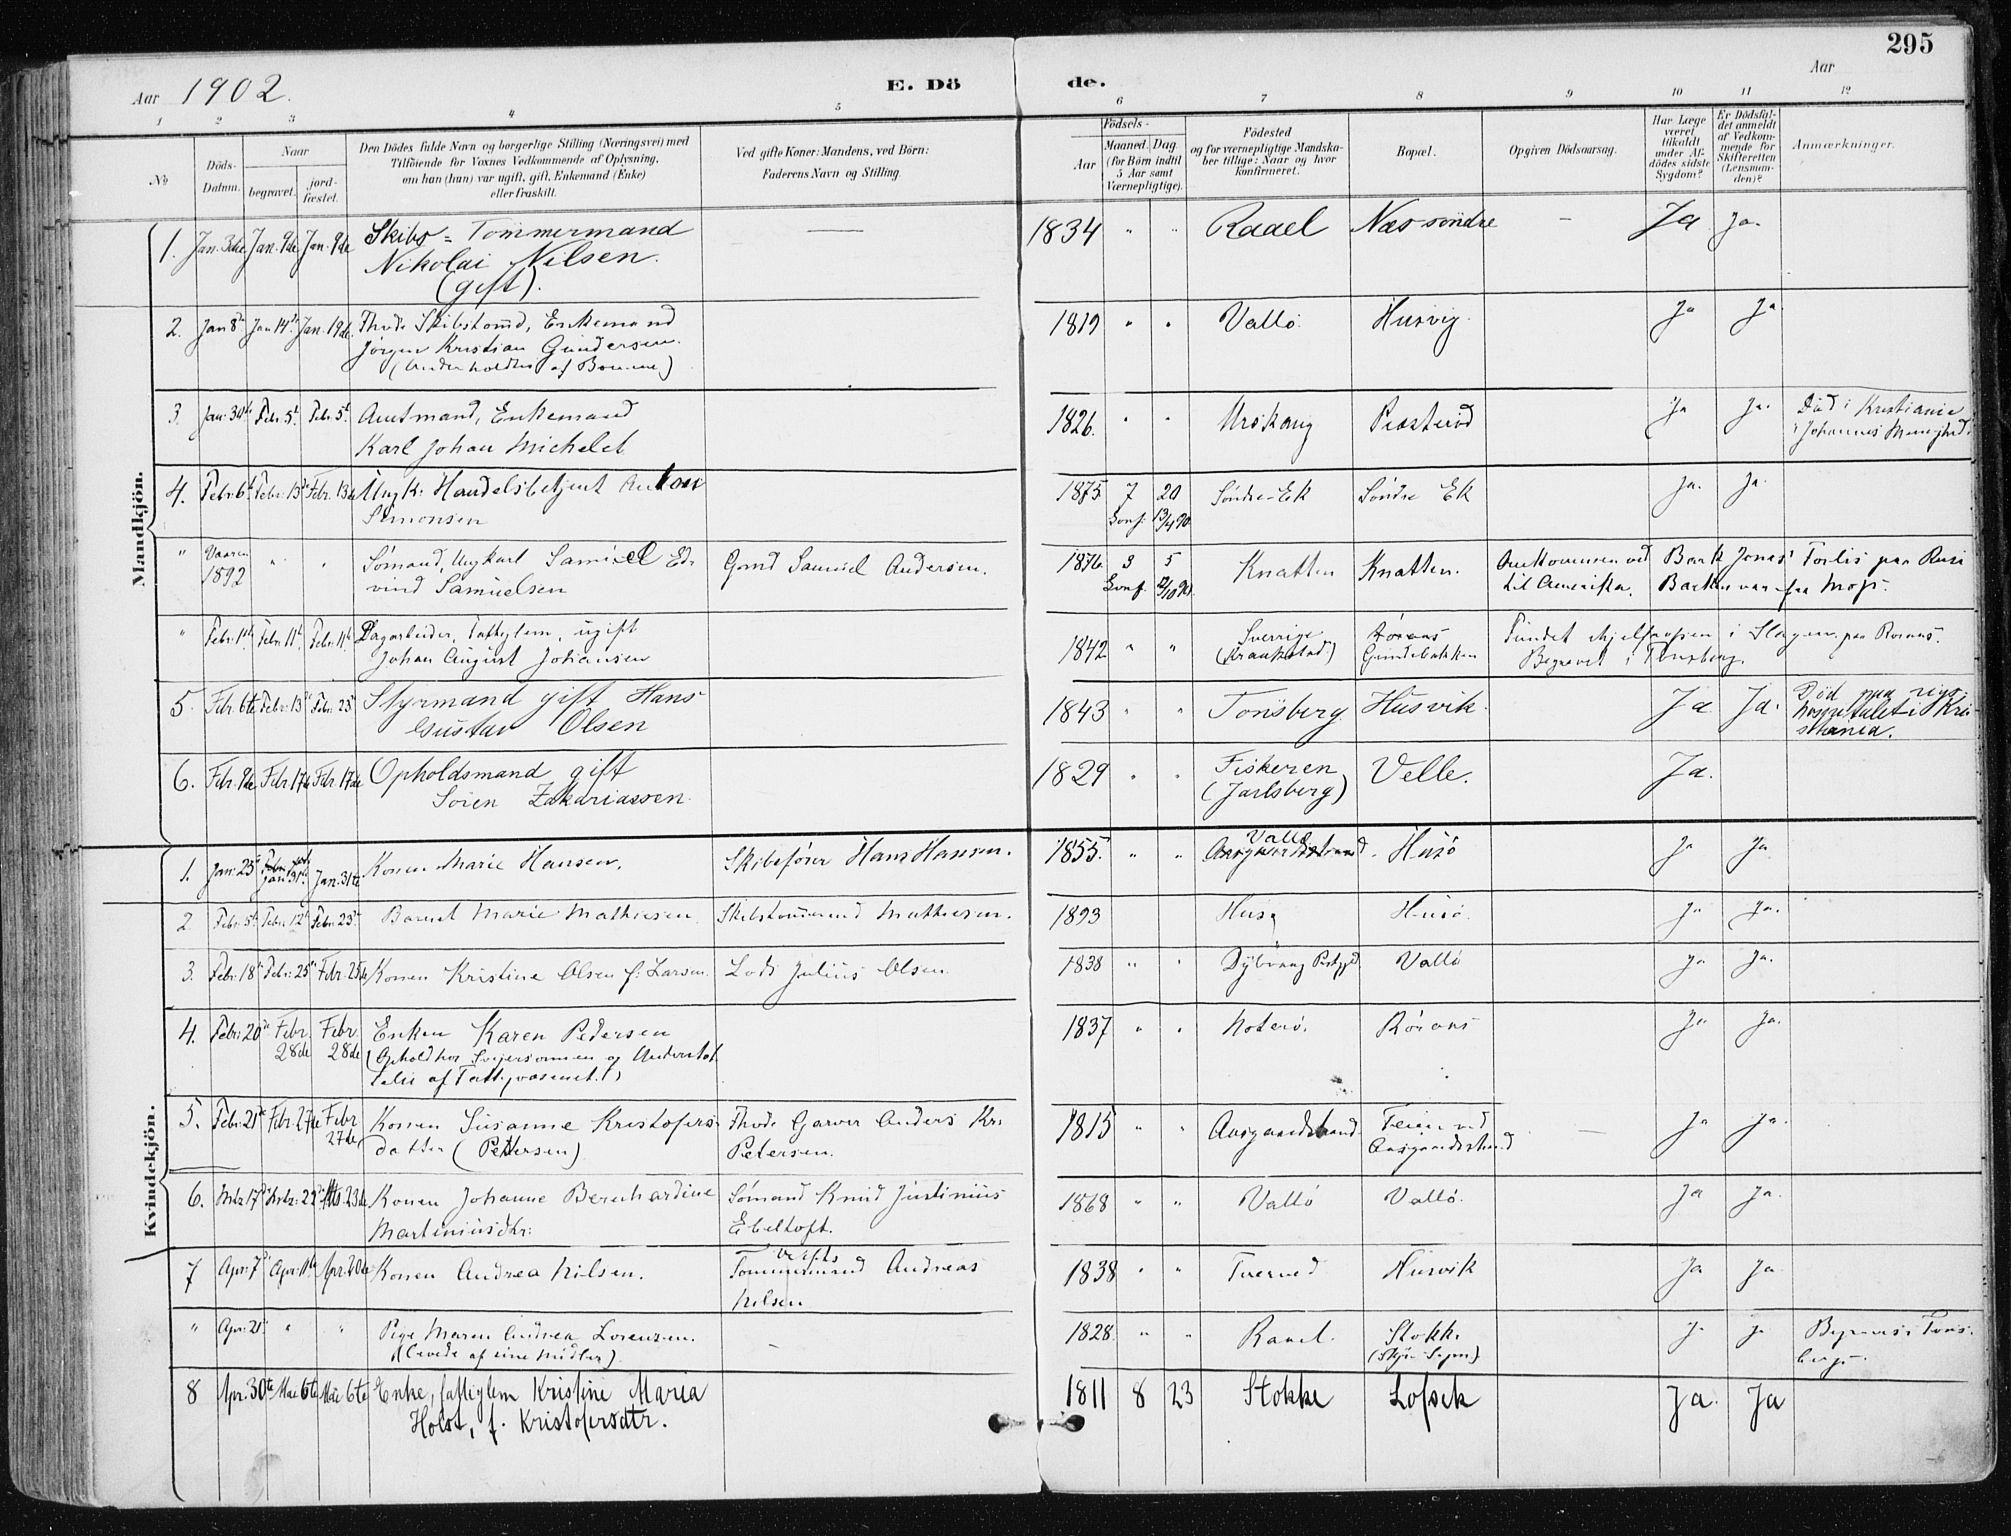 295
Aar 1902.
E. Dö de.
Aar
1 2 3 4 5 6 7 8 9 10 11 12
№
Döds-Datum.
Naar
begravet.
jord-fæstet.
Den Dödes fulde Navn og borgerlige Stilling (Næringsvei) med
Tilföiende for Voxnes Vedkommende af Oplysning,
om han (hun) var ugift, gift, Enkemand (Enke)
eller fraskilt.
Ved gifte Koner: Mandens, ved Börn:
Faderens Navn og Stilling.
Födsels-
Aar
Maaned. Dag.
(for Börn indtil
5 Aar samt
Værnepligtige).
Födested
og for værnepligtige Mandska-
ber tillige: Naar og hvor
konfirmeret.
Bopæl.
Opgiven Dödsaarsag.
Har Læge
været
tilkaldt
under Af-
dödes sidste
Sygdom?
Er Dödsfal-
det anmeldt
af Vedkom-
mende for
Skifteretten
(Lensman-
den)?
Anmærkninger.
Mandkjön.
1. Jan. 9de Jan. 9de Skibs = Tømmermand — 1834 " " Raael Næs søndre — Ja Ja.
Nikolai Nilsen.
(gift).
2. Jan 8de Jan 14de Jan. 19de Enkemand 1819 " " Vallö Husvig. Ja Ja.
Jörgen Kristian Gundersen.
3. Jan. 30te Febr. 5te Febr. 5te Amtmand, Enkemand 1826. " " Urskaug Presterød Ja Ja. Död i Kristiania
Karl Johan Michelet
4. Febr. 6te Febr. 13de Febr. 13de Ungk. Handelsbetjent Anton 1875 7 20 Søndre-Ek Søndre Ek Ja. Ja.
Simonsen Conf. 13/4 90
" Vaaren 1892 " " Sömand, Ungkarl Samuel Ed- Gmd Samuel Andersen. 1876 3 5 Knatten Knatten. Omkommen ved Bark "Jonas" Forlis paa Reise
vind Samuelsen Conf. til Amerika. Barken var fra Moss.
" Febr. 11te Febr. 11te Dagarbeider, Fattiglem, ugift 1842 " " Sverrige Fundet ihjelfrosen i Slagen paa Roraas.
Johan August Johansen Begravet i Tønsberg.
5. Febr. 6te Febr. 13de Febr. 23de Styrmand gift Hans 1843 " " Tønsberg Husvik. Ja Ja. Död paa rigs-
Gustav Olsen hospitalet i Kri-
stiania.
6. Febr. 9de Febr 17de Febr 17de Opholdsmand gift 1829 " " Fiskeren Velle. Ja.
Sören Zakariassen (Jarlsberg)
Kvindekjön.
1. Jan. 25de Jan. 31te Jan. 31te Konen Marie Hansen. Skibsförer Hans Hansen. 1855. " " Vallö Husö Ja Ja.
2 Febr. 5te Febr. 12te Febr. 23de Barnet Marie Mathiesen Skibstømmermand Mathiesen. 1893 Husö Husö. Ja Ja.
3. Febr. 18de Febr. 25de Febr. 25de Konen Kristine Olsen f. Larsen. Lods Julius Olsen. 1838 " " Dybvaag Vallö Ja Ja.
4. Febr. 20de Febr. 28de Febr 28de Enken Karen Pedersen 1837 " " Noterö. Röraas Ja Ja.
(Ophold hos Svigersønnen og Understöt-
telse af Fattigvæsenet.)
5. Febr. 21de Febr. 27de Febr 27de Konen Susanne Kristofers- Garver Anders Kr. 1815 " " Aasgaardstrand Feien ved — Ja Ja.
datter (Pettersen) Petersen. Aasgaardstrand
6. Mrts 17de Mrts. 22de Mts 23de Konen Johanne Bernhardine Sömand Knud Justinius 1868 " " Vallö Vallö. Ja Ja.
Martiniusdtr. Ebeltoft.
7 Apr. 7de Apr. 11te Apr. 20de Konen Andrea Nilsen. Tømmermand Andreas 1838 " " Tverved Husvik Ja Ja.
Nilsen
" Apr. 21de " " Pige Maren Andrea Lorenzen. — 1828. " " Raael. Stokke Ja Ja Begravet i Tøns-
(levede af sine Midler) berg.
8 Apr. 30te Mai 6te Mai 6te Enke, fattiglem Kristine Maria 1811 8 23 Stokke Lofsek Ja. Ja
Holst, f. Kristofersdtr.